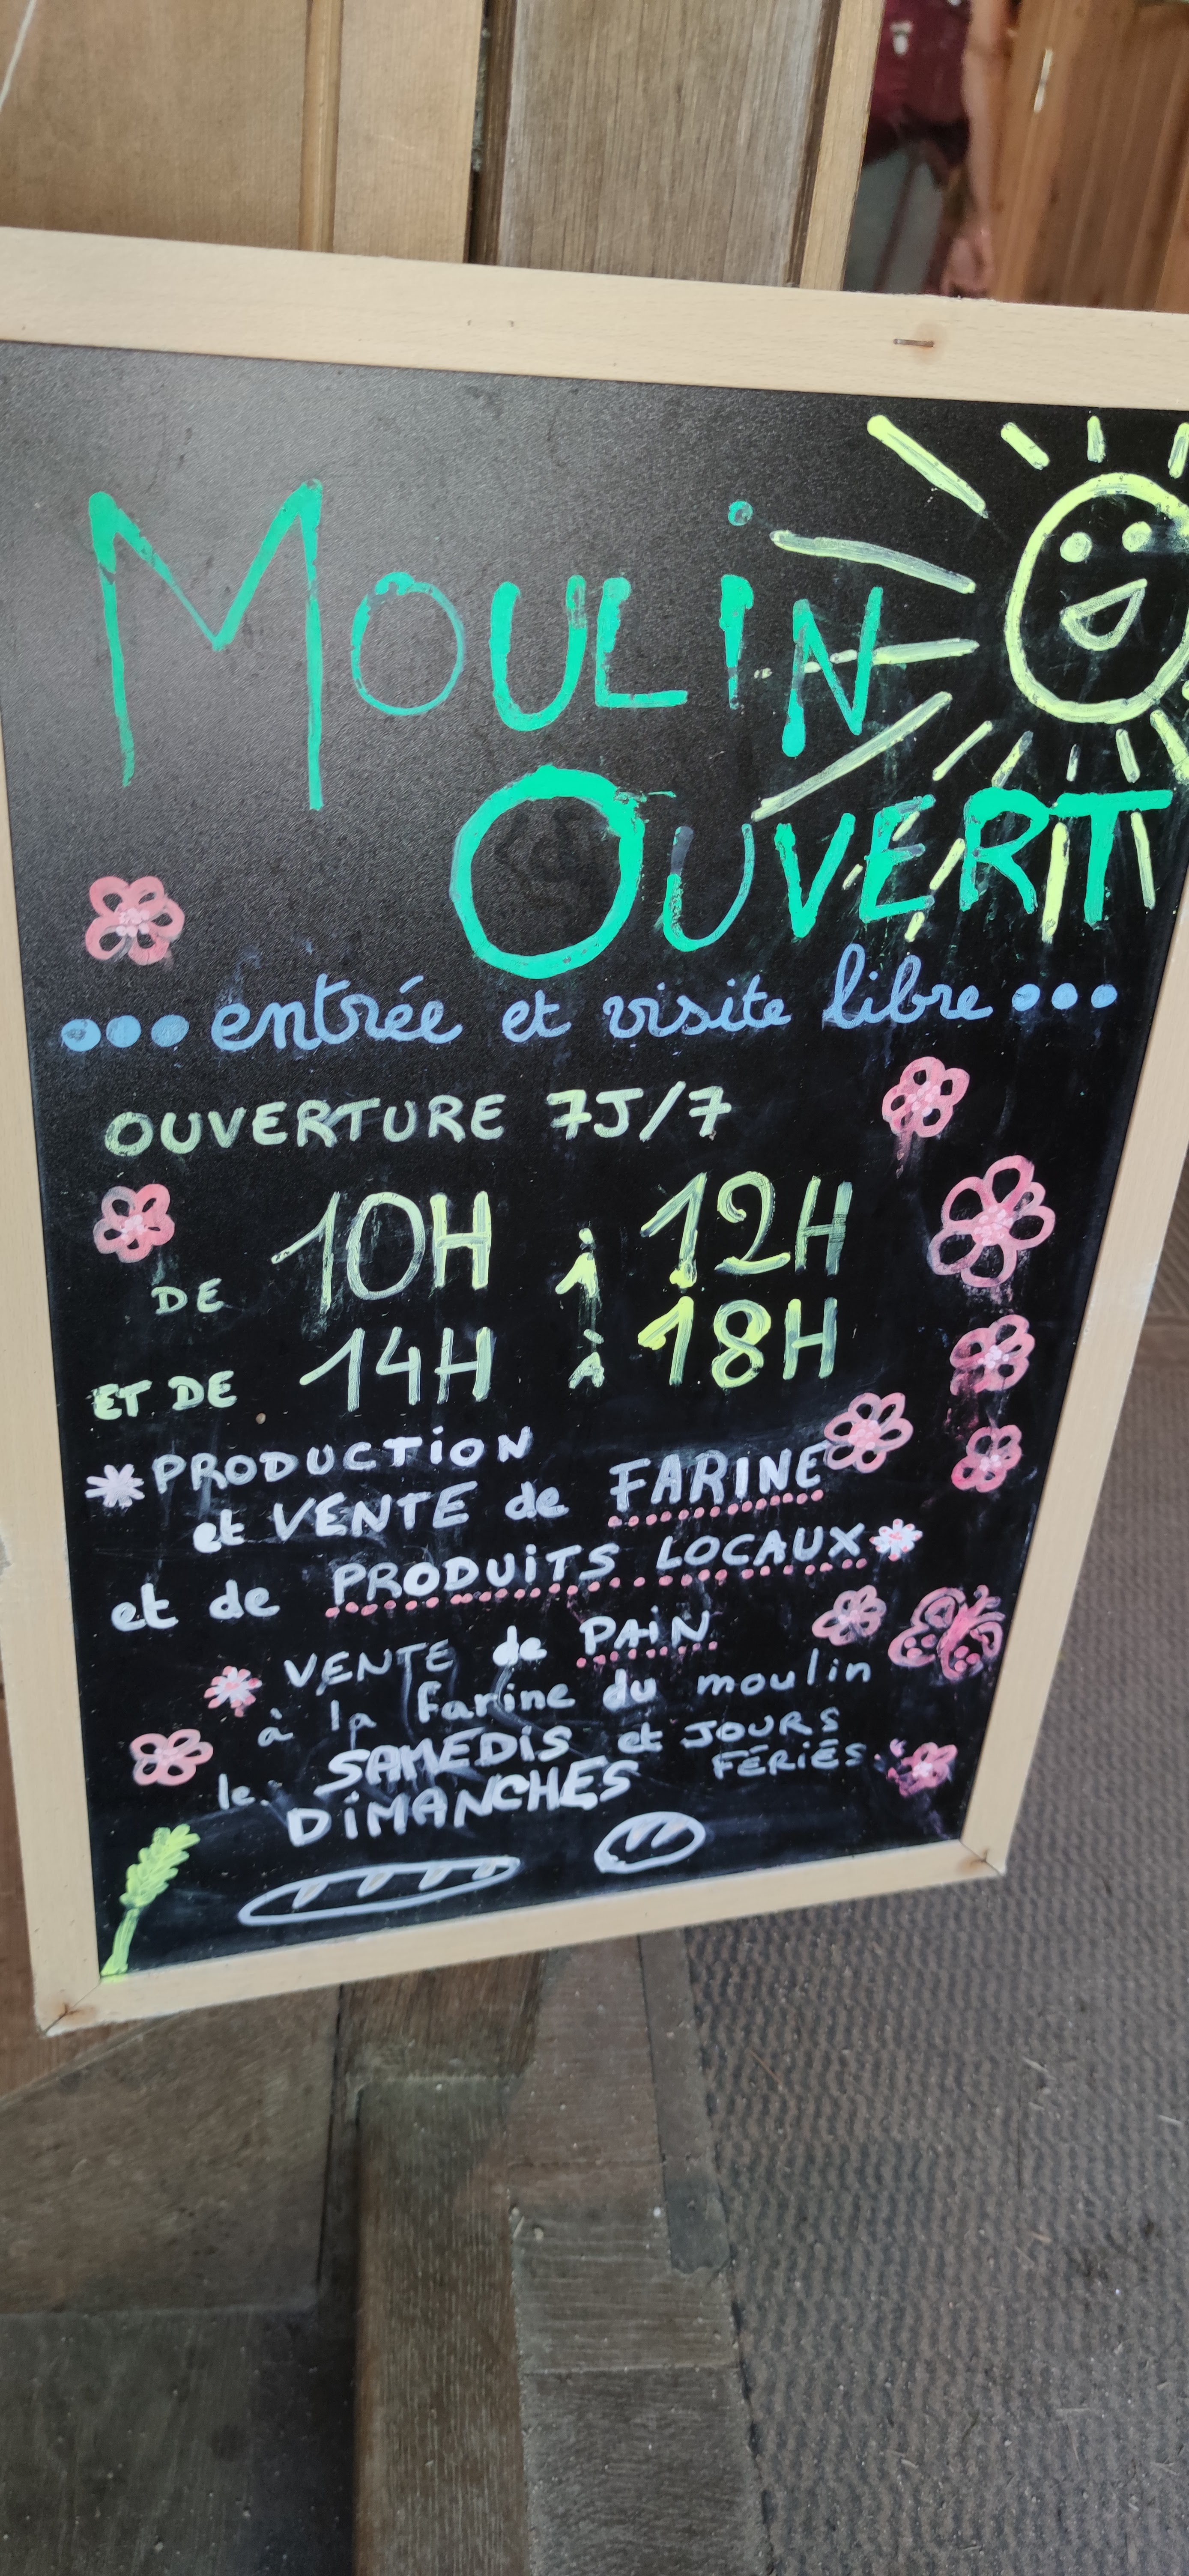 MOULIN
OUVERT
... entrée et visite libre ...
OUVERTURE 7J/7
DE 10H à 12H
ET DE 14H À 18H
* PRODUCTION
et VENTE de FARINE
et de PRODUITS LOCAUX *
* VENTE de PAIN
à la Farine du moulin
le. SAMEDIS et JOURS
FÉRIÉS
DIMANCHES